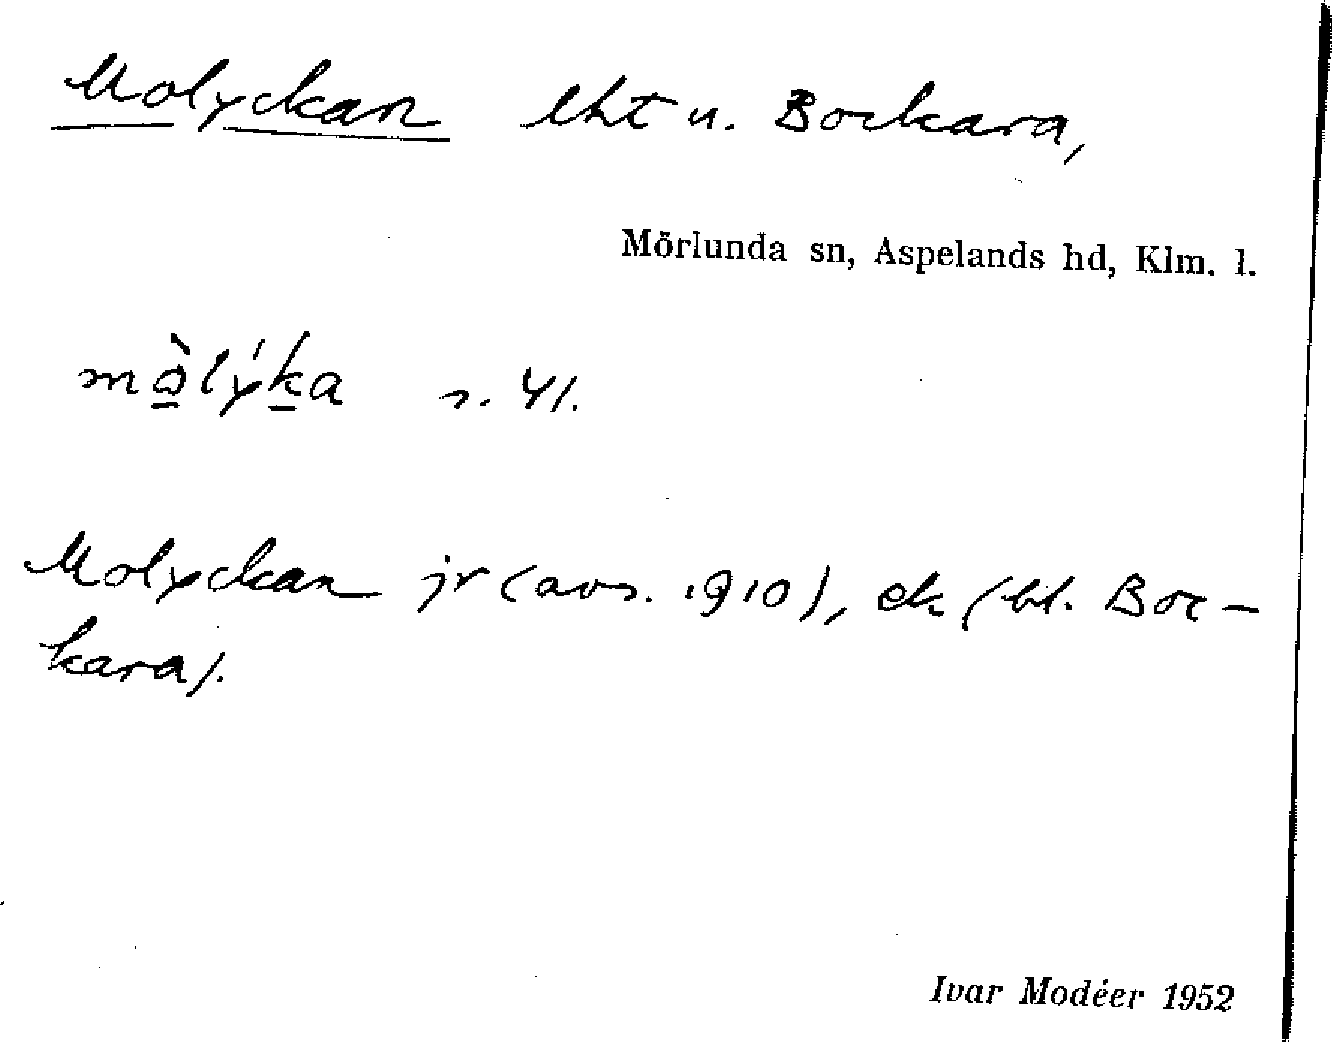 Molyckan lht u. Bockara,
Mörlunda sn, Aspelands hd, Klm. l.
mòlýka s. 41.
Molyckan jr (avs. 1910), ek (bl. Boc-
kara).
Ivar Modéer 1952